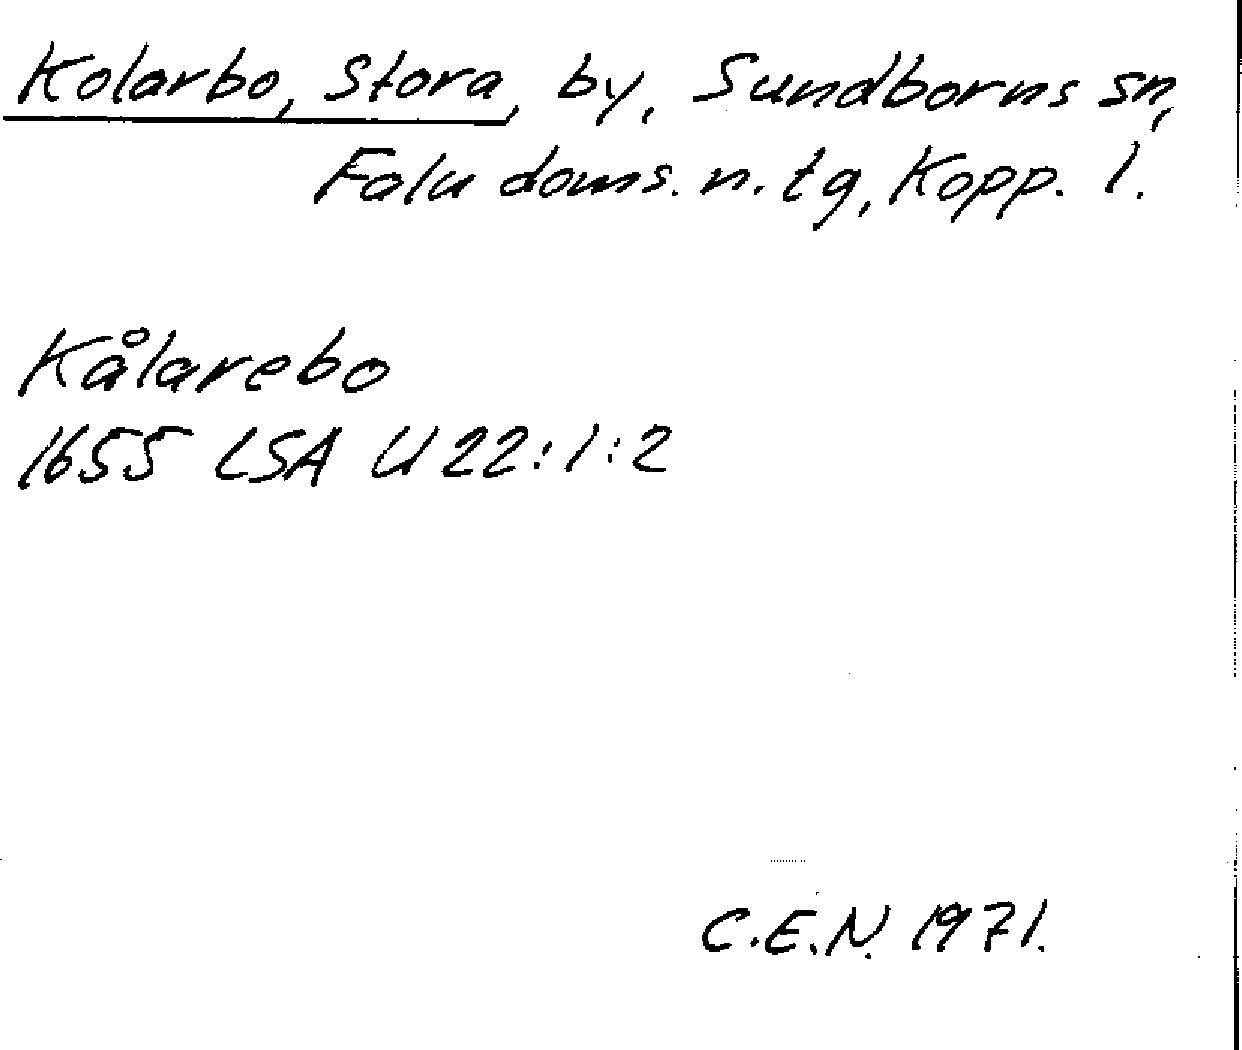 Kolarbo, Stora, by, Sundborns sn,
Falu doms. n. tg, Kopp. l.
Kålarebo
1655 LSA U 22:1:2
C.E.N. 1971.